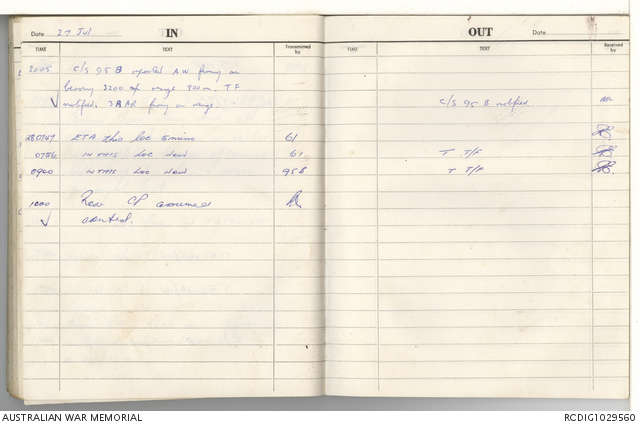 Date 27 Jul IN
TIME TEXT Transmitted by
2005 C/S 95 B reported AW firing on
bearing 3200 range 500m. T.F.
notified. 3RAR firing on range.
280747 ETA this loc 5 mins 61
0756 IN THIS Loc Now 61
0900 IN THIS Loc Now 95B
1000 Rear CP assumed
control.
OUT Date
TIME TEXT Received by
C/S 95 B notified
T T/F
T T/F
AUSTRALIAN WAR MEMORIAL RCDIG1029560